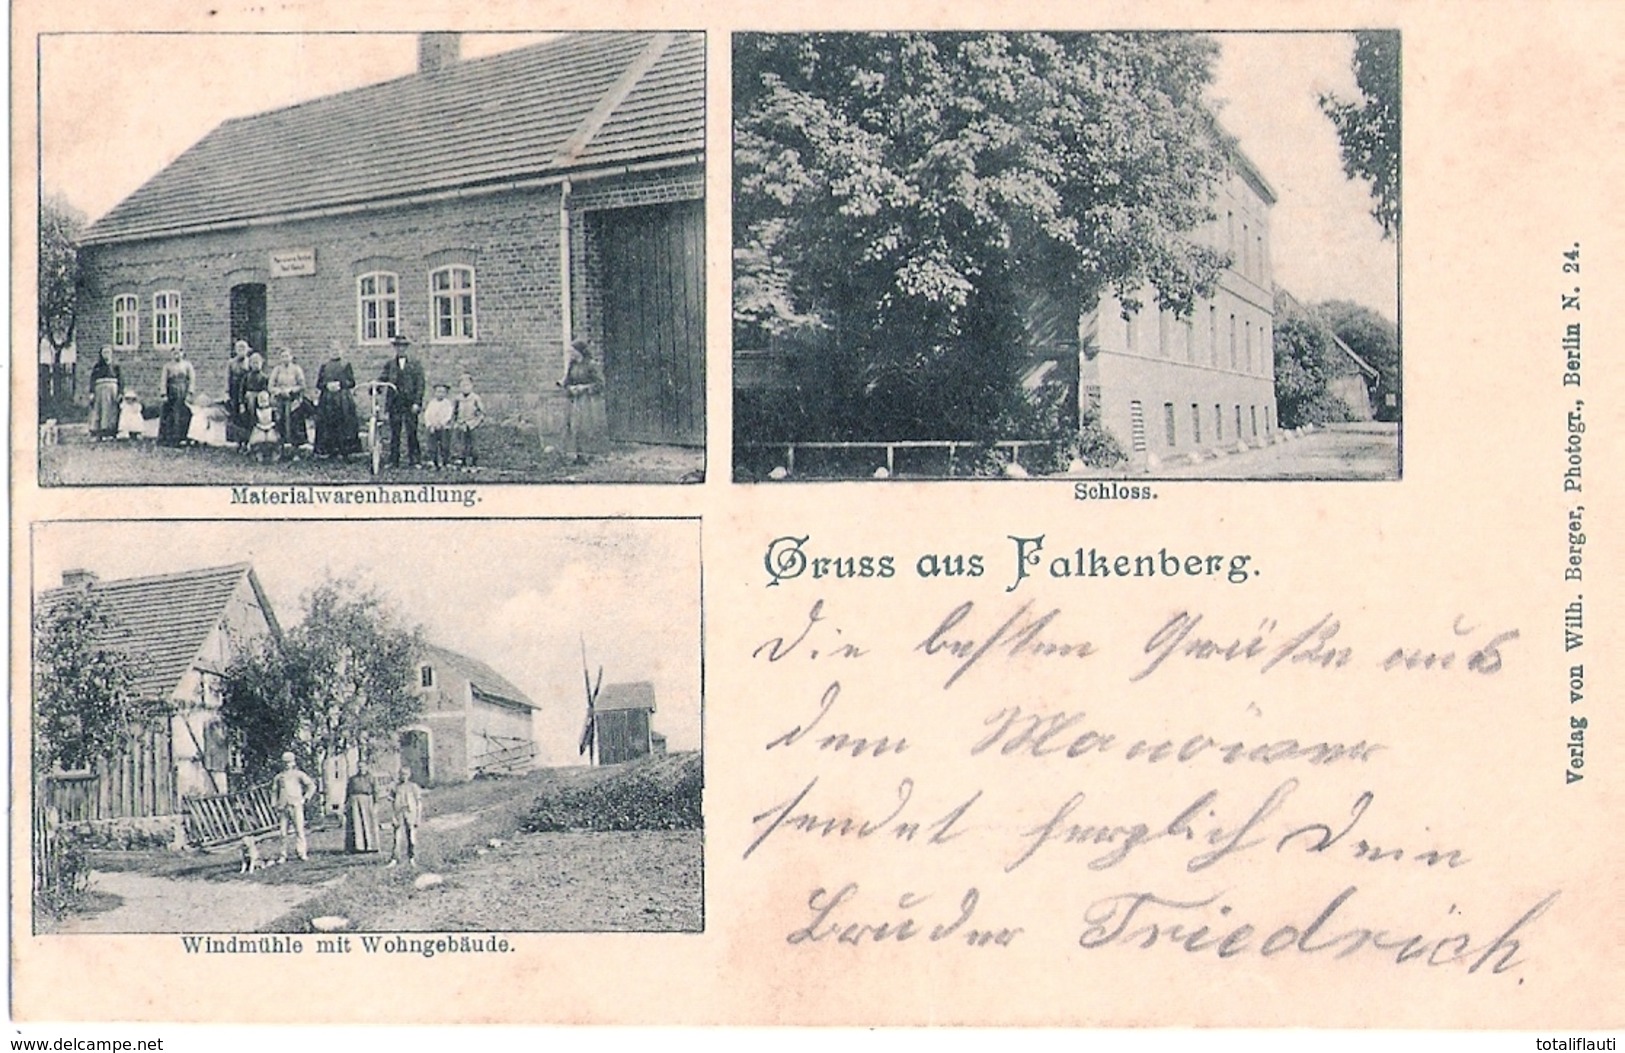 Materialwarenhandlung.
Schloss.
Windmühle mit Wohngebäude.
Gruss aus Falkenberg.
Die besten Grüße aus
dem Manöwer
sendet herzlich Dein
Bruder Friedrich.
Verlag von Wilh. Berger, Photogr., Berlin N. 24.
www.delcampe.net
totaliflauti